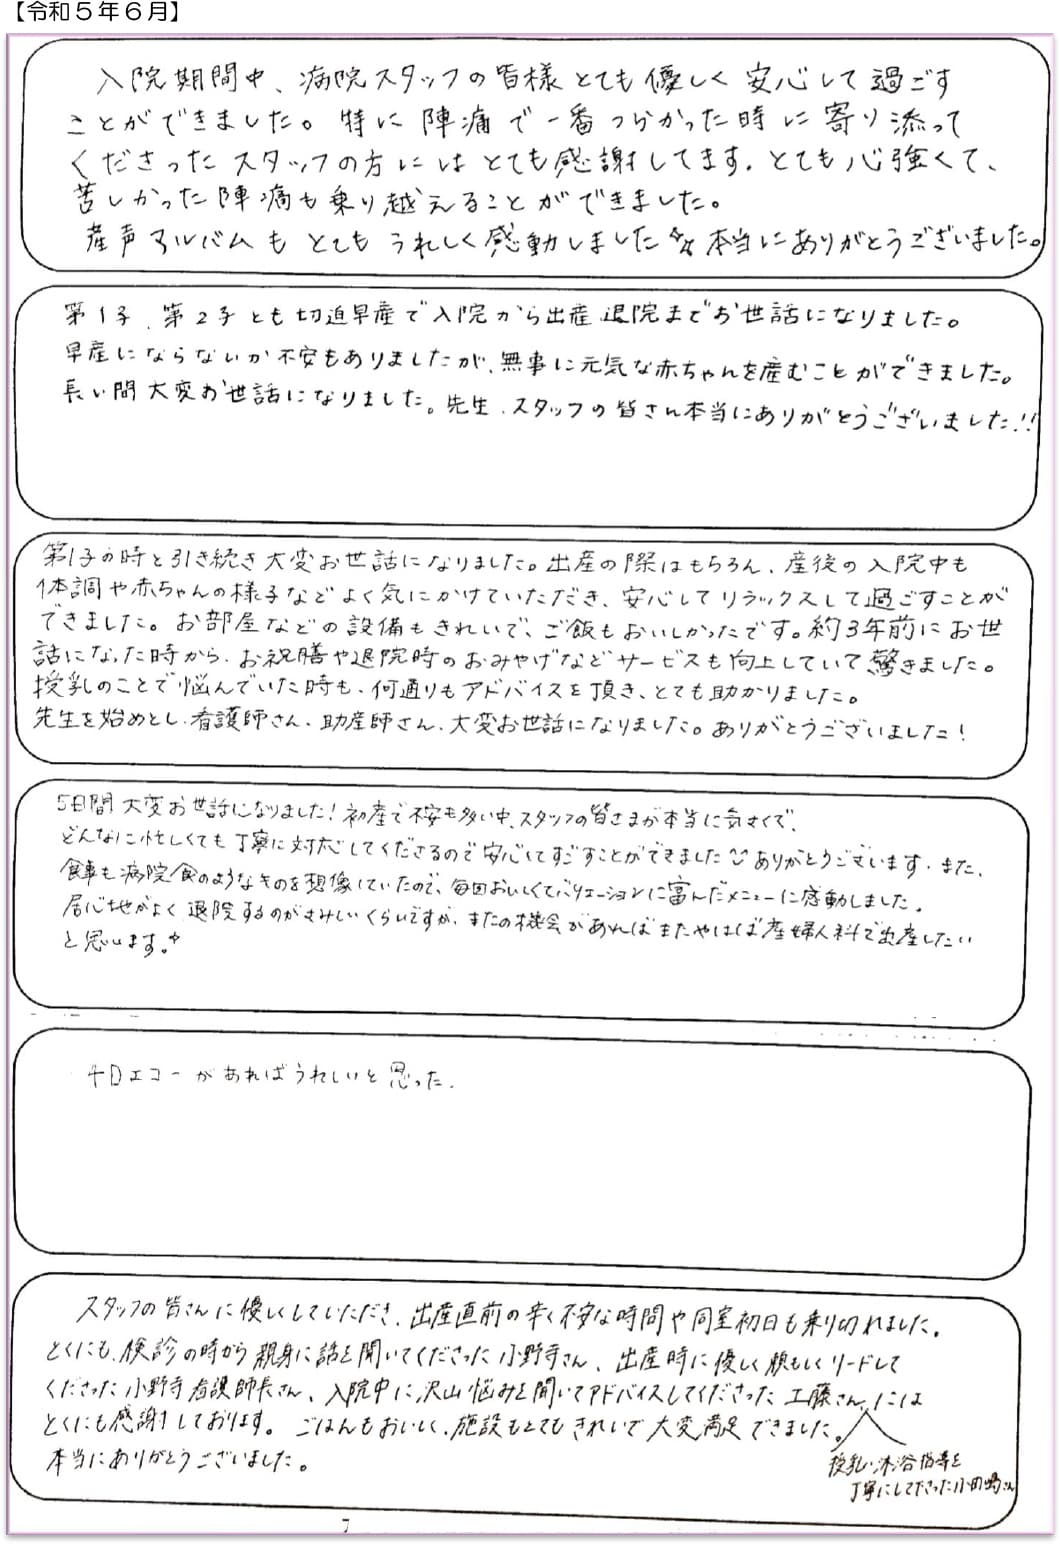 【令和５年６月】
入院期間中、病院スタッフの皆様とても優しく安心して過ごす
ことができました。特に陣痛で一番つらかった時に寄り添って
くださったスタッフの方にはとても感謝してます。とても心強くて、
苦しかった陣痛も乗り越えることができました。
産声アルバムもとてもうれしく感動しました☆本当にありがとうございました。
第1子、第2子とも切迫早産で入院から出産退院までお世話になりました。
早産にならないか不安もありましたが、無事に元気な赤ちゃんを産むことができました。
長い間大変お世話になりました。先生、スタッフの皆さん本当にありがとうございました!!
第1子の時と引き続き大変お世話になりました。出産の際はもちろん、産後の入院中も
体調や赤ちゃんの様子などよく気にかけていただき、安心してリラックスして過ごすことが
できました。お部屋などの設備もきれいで、ご飯もおいしかったです。約3年前にお世
話になった時から、お祝膳や退院時のおみやげなどサービスも向上していて驚きました。
授乳のことで悩んでいた時も、何通りもアドバイスを頂き、とても助かりました。
先生を始めとし、看護師さん、助産師さん、大変お世話になりました。ありがとうございました!
5日間大変お世話になりました!初産で不安も多い中、スタッフの皆さまが本当に気さくで、
どんなに忙しくても丁寧に対応してくださるので安心してすごすことができました ありがとうございます。また、
食事も病院食のようなものを想像していたので、毎回おいしくてバリエーションに富んだメニューに感動しました。
居心地がよく退院するのがさみしいくらいですが、またの機会があればまたやはば産婦人科で出産したい
と思います。
4Dエコーがあればうれしいと思った。
スタッフの皆さんに優しくしていただき、出産直前の辛く不安な時間や同室初日も乗り切れました。
とくにも、検診の時から親身に話を聞いてくださった小野寺さん、出産時に優しく頼もしくリードして
くださった小野寺看護師長さん、入院中に沢山悩みを聞いてアドバイスしてくださった工藤さん、には
とくにも感謝しております。ごはんもおいしく、施設もとてもきれいで大変満足できました。
授乳・沐浴指導を
丁寧にしてくださった小田嶋さん
本当にありがとうございました。
7